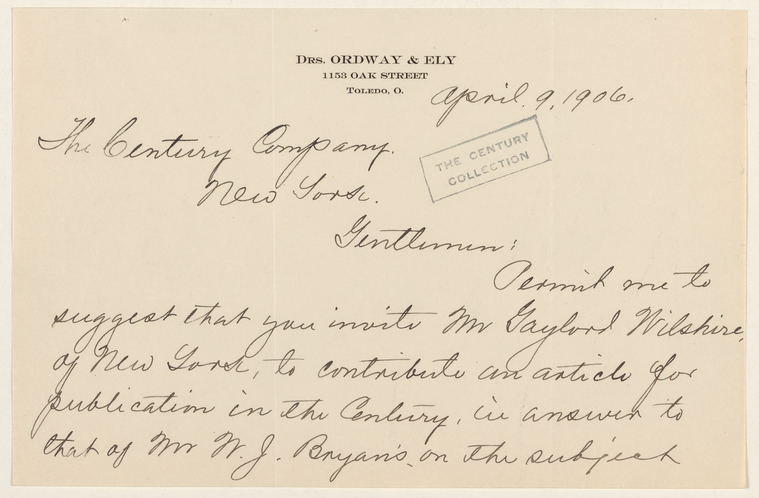 Drs. ORDWAY & ELY
1153 OAK STREET
Toledo, O.
April. 9, 1906.
The Century Company.
THE CENTURY
COLLECTION
New York.
Gentlemen:
Permit me to
suggest that you invite Mr Gaylord Wilshire,
of New York, to contribute an article for
publication in the Century, in answer to
that of Mr W. J. Bryan's on the subject